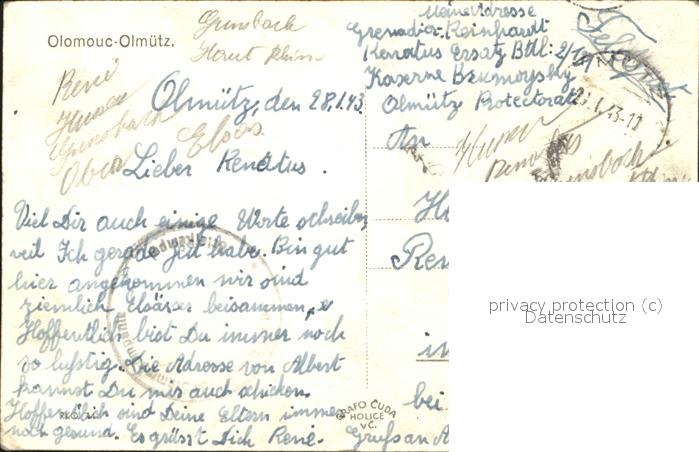 Olomouc-Olmütz.
Gunsbach
Haut Rhin
René
Gunsbach
Elsas
Meine Adresse
Grenadier. Reinhardt
Renatus Ersatz Btl. 2/
Kaserne
Olmütz Protectorat
Feldpost
Olmütz, den 28.1.43.
Lieber Renatus.
An
Viel Dir auch einige Worte schreiben
veil Ich gerade Zeit habe. Bin gut
hier angekommen wir sind
ziemlich Elsäser beisammen,
Hoffentlich bist Du immer noch
so lusstig. Die Adresse von Albert
kannst Du mir auch schicken.
Hoffentlich sind Deine Eltern immer
noch gesund. Es grüsst Dich René.
Ren
in
bei
Gruss an A
GRAFO ČUDA
HOLICE
privacy protection (c)
Datenschutz